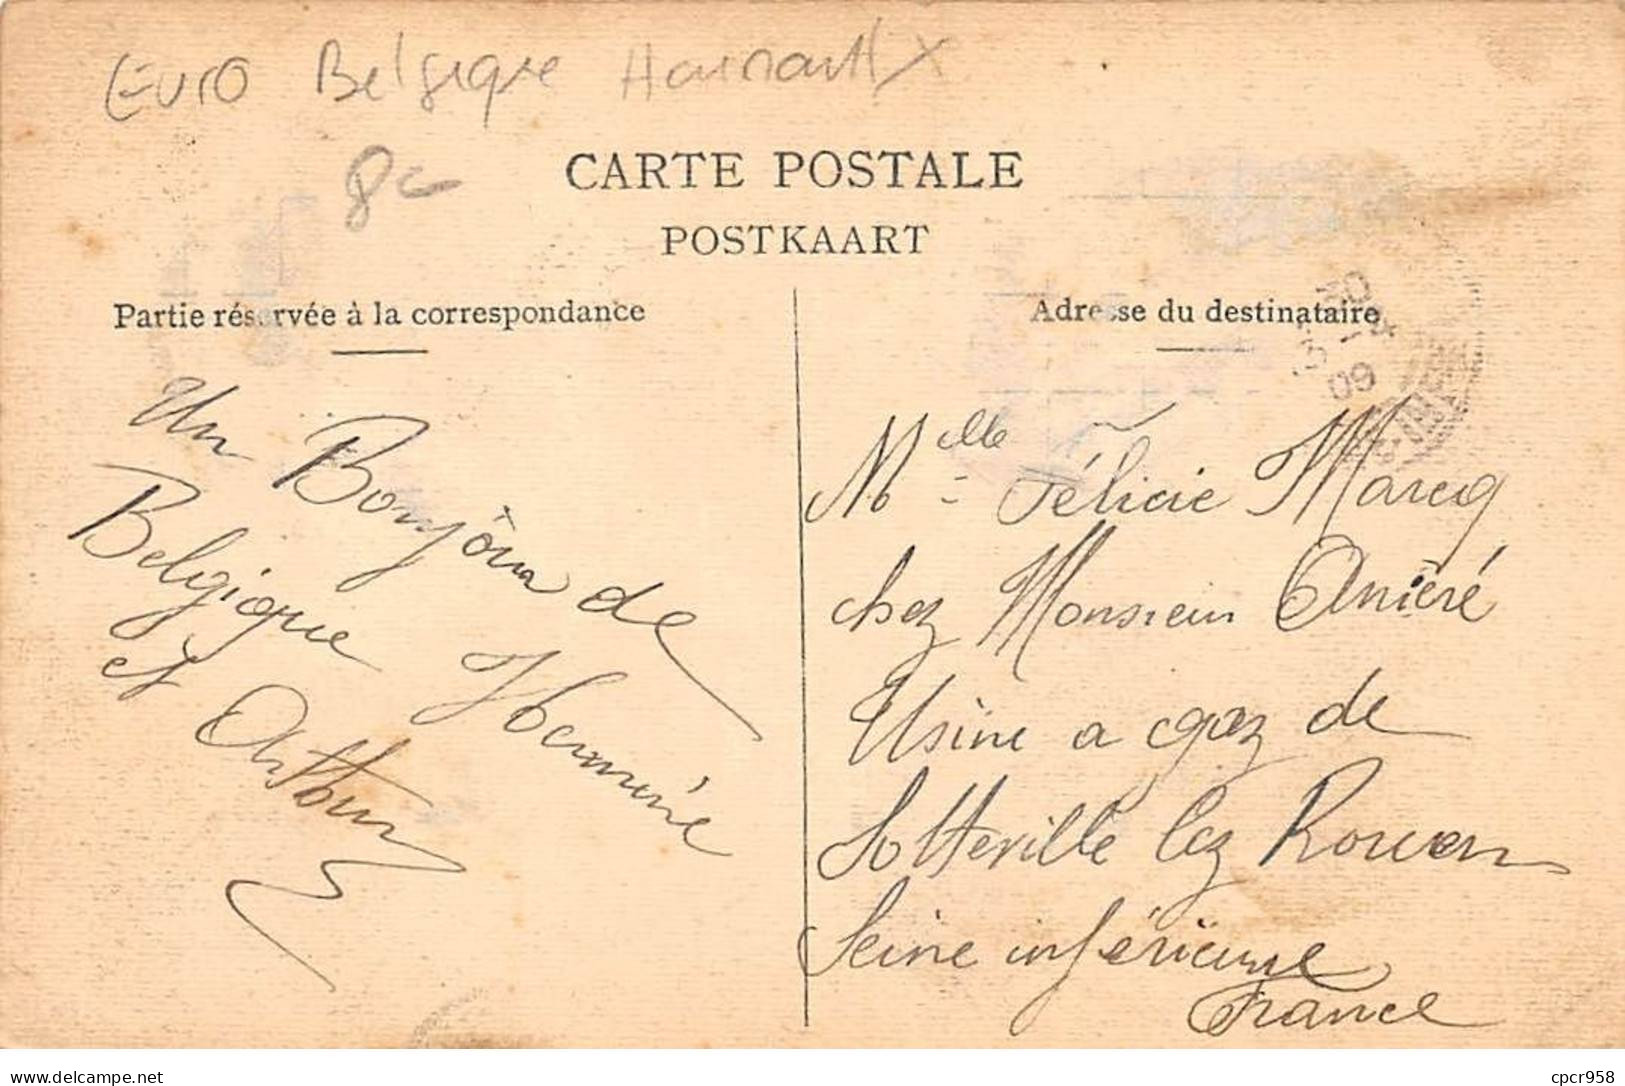 EURO Belgique Hainault X
8c
CARTE POSTALE
POSTKAART
Partie réservée à la correspondance
Adresse du destinataire
09
Un Bonjour de
Belgique Hermine
et Arthur
Mlle Félicie Marcq
chez Monsieur
Usine a gaz de
Sotteville lez Rouen
Seine inférieure
France
delcampe.net
cpcr958